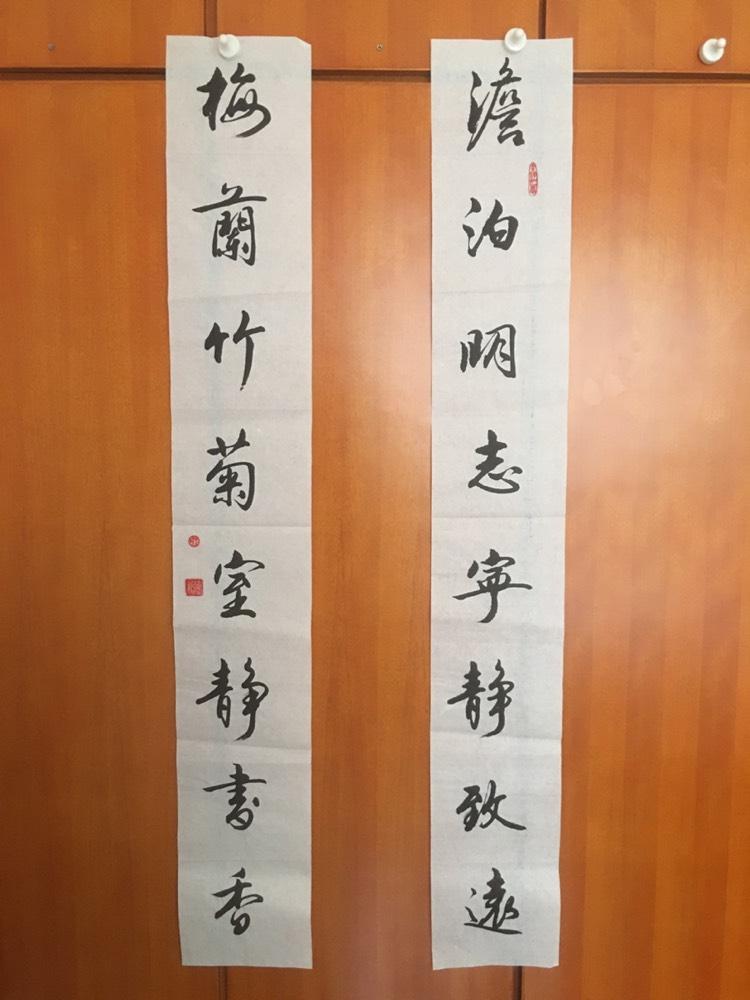 澹泊明志宁静致遠
梅蘭竹菊室静書香